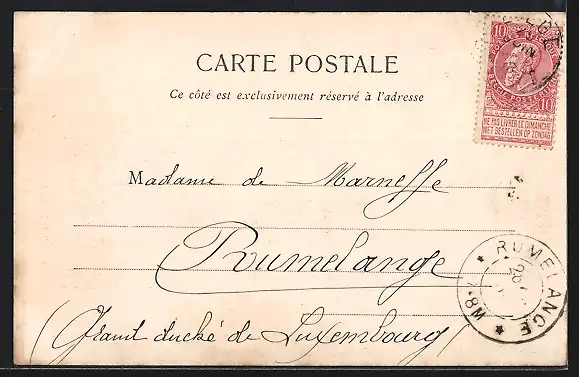 CARTE POSTALE
Ce côté est exclusivement réservé à l'adresse
10 10
NE PAS LIVRER LE DIMANCHE
NIET BESTELLEN OP ZONDAG
Madame de Marneffe
Rumelange
(Grand duché de Luxembourg)
RUMELANGE
7-8N